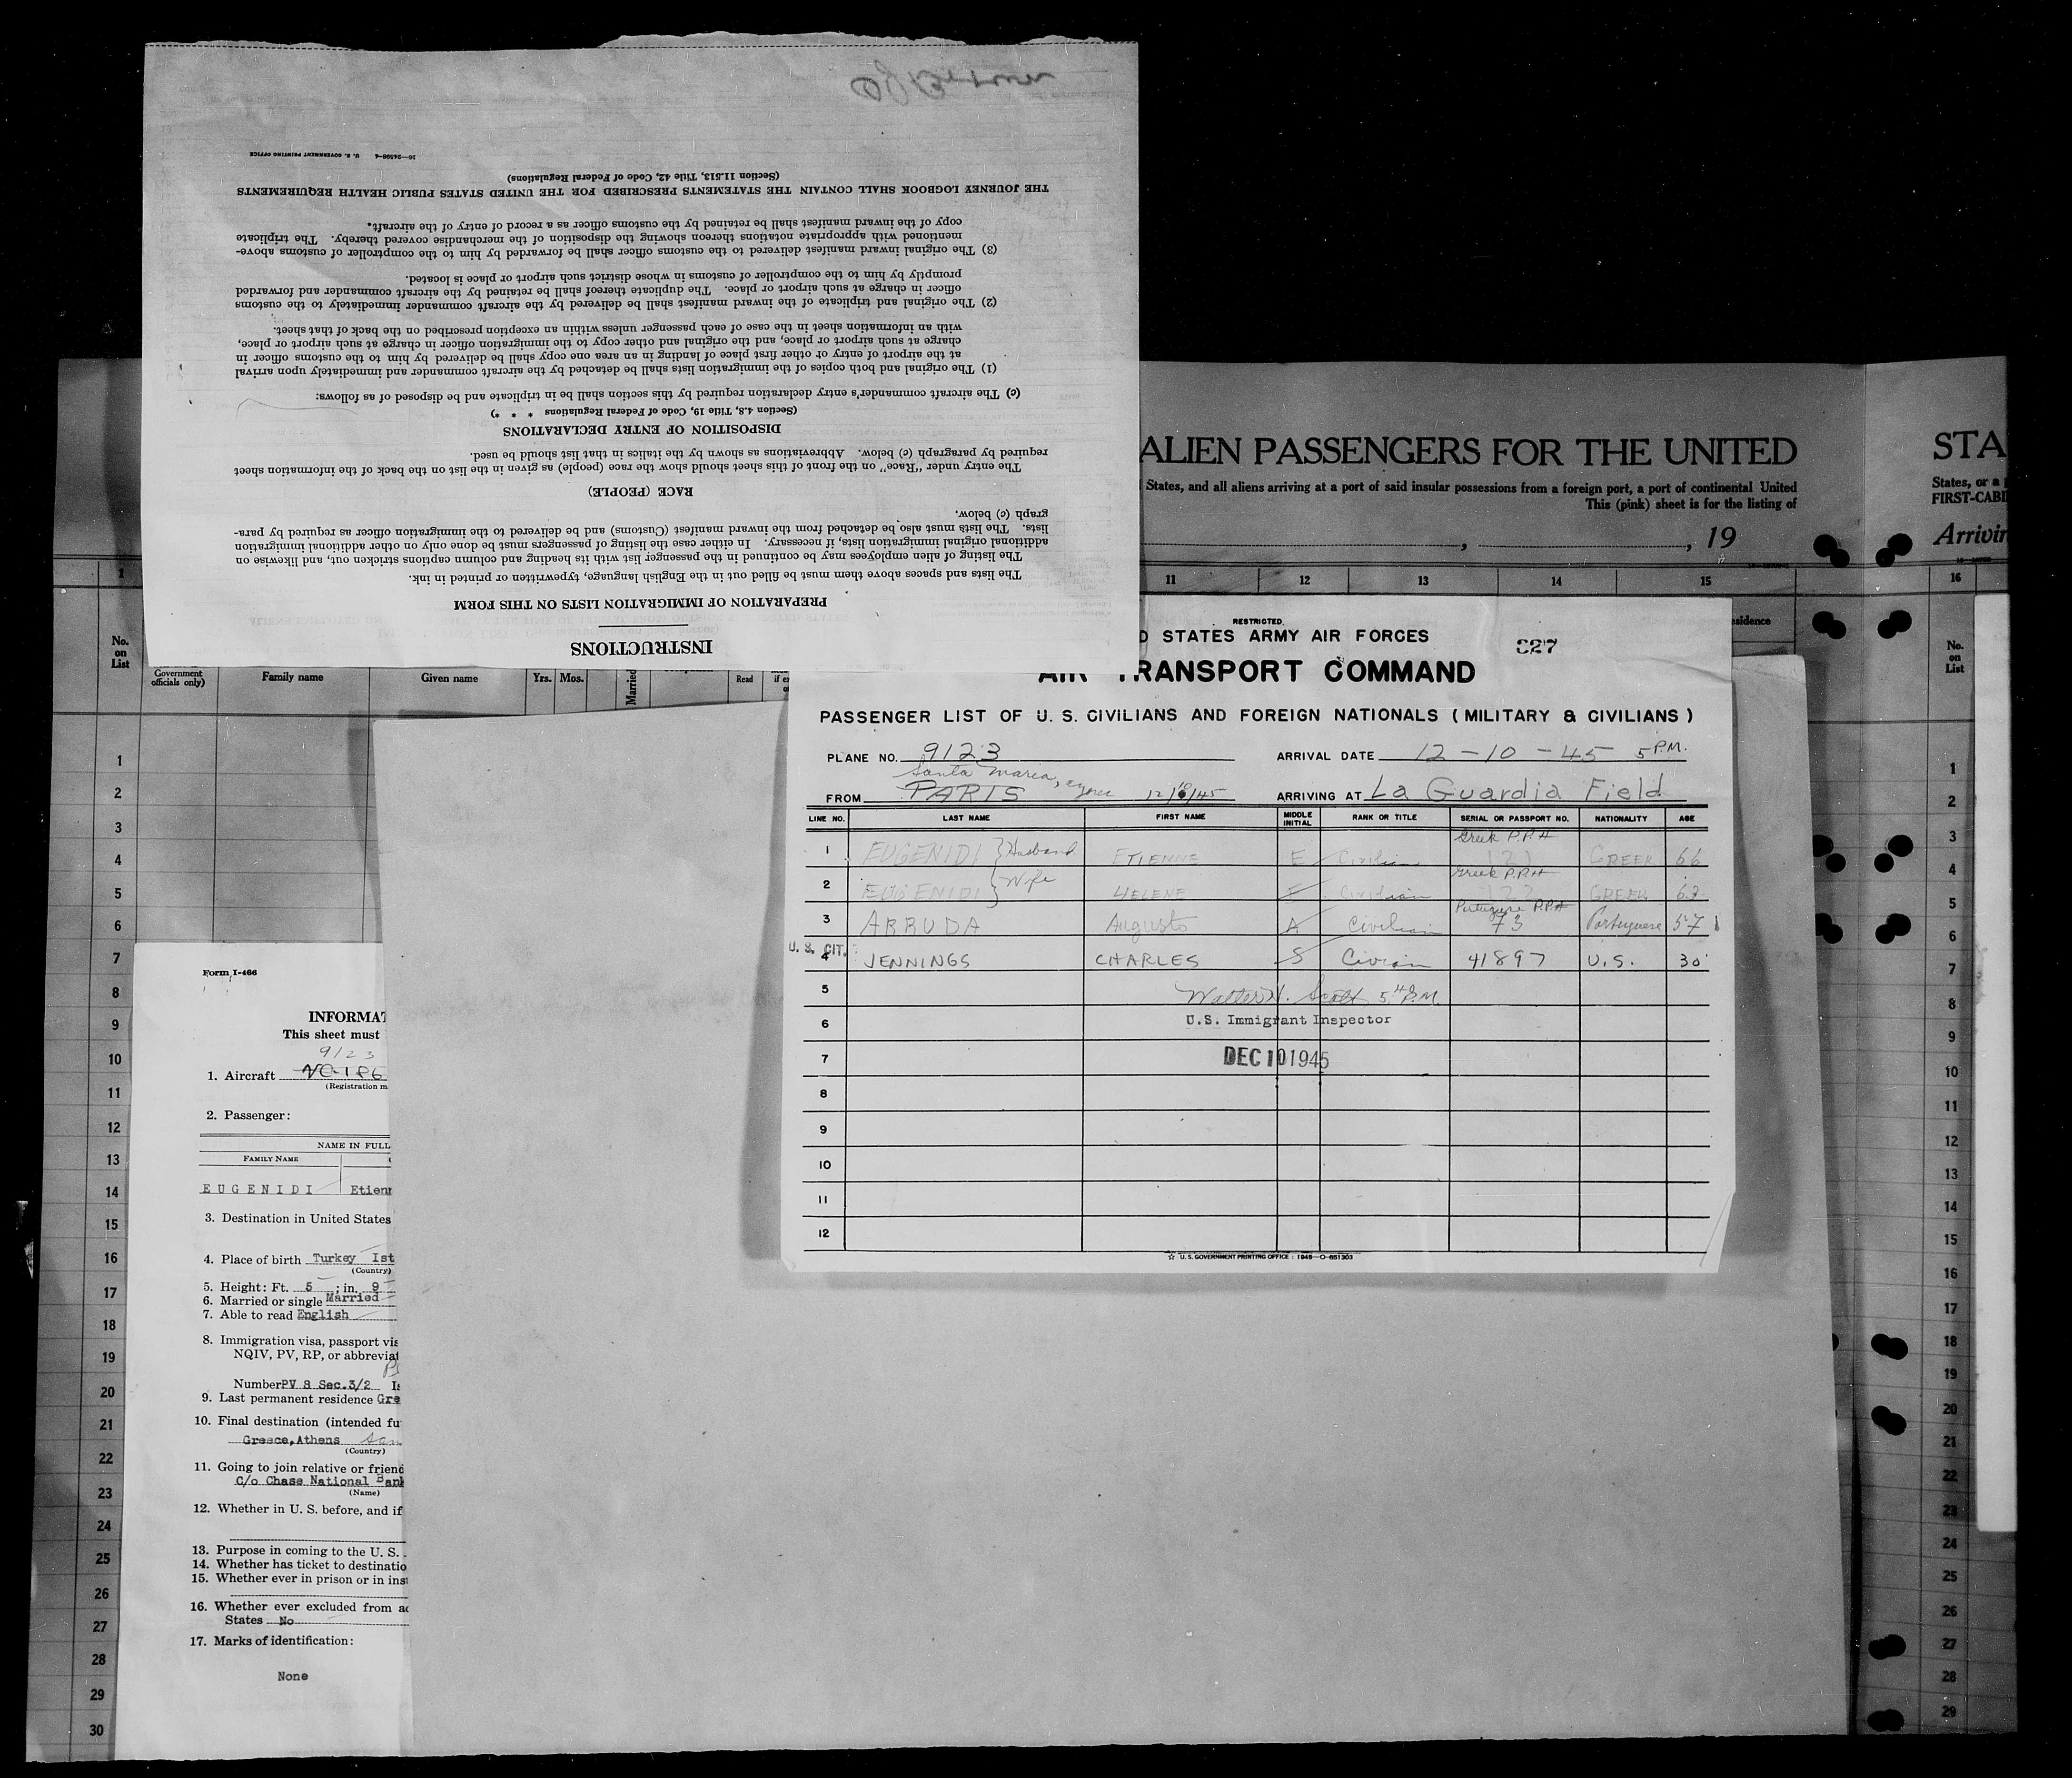 16—24598-4 U. S. GOVERNMENT PRINTING OFFICE
INSTRUCTIONS
PREPARATION OF IMMIGRATION LISTS ON THIS FORM
The lists and spaces above them must be filled out in the English language, typewritten or printed in ink.
The listing of alien employees may be continued in the passenger list with its heading and column captions stricken out, and likewise on
additional original immigration lists, if necessary. In either case the listing of passengers must be done only on other additional immigration
lists. The lists must also be detached from the inward manifest (Customs) and be delivered to the immigration officer as required by para-
graph (c) below.
RACE (PEOPLE)
The entry under "Race" on the front of this sheet should show the race (people) as given in the list on the back of the information sheet
required by paragraph (c) below. Abbreviations as shown by the italics in that list should be used.
DISPOSITION OF ENTRY DECLARATIONS
(Section 4.8, Title 19, Code of Federal Regulations * * *)
(c) The aircraft commander's entry declaration required by this section shall be in triplicate and be disposed of as follows:
(1) The original and both copies of the immigration lists shall be detached by the aircraft commander and immediately upon arrival
at the airport of entry or other first place of landing in an area one copy shall be delivered by him to the customs officer in
charge at such airport or place, and the original and other copy to the immigration officer in charge at such airport or place,
with an information sheet in the case of each passenger unless within an exception prescribed on the back of that sheet.
(2) The original and triplicate of the inward manifest shall be delivered by the aircraft commander immediately to the customs
officer in charge at such airport or place. The duplicate thereof shall be retained by the aircraft commander and forwarded
promptly by him to the comptroller of customs in whose district such airport or place is located.
(3) The original inward manifest delivered to the customs officer shall be forwarded by him to the comptroller of customs above-
mentioned with appropriate notations thereon showing the disposition of the merchandise covered thereby. The triplicate
copy of the inward manifest shall be retained by the customs officer as a record of entry of the aircraft.
THE JOURNEY LOGBOOK SHALL CONTAIN THE STATEMENTS PRESCRIBED FOR THE UNITED STATES PUBLIC HEALTH REQUIREMENTS
(Section 11.513, Title 42, Code of Federal Regulations)
ALIEN PASSENGERS FOR THE UNITED
States, and all aliens arriving at a port of said insular possessions from a foreign port, a port of continental United
This (pink) sheet is for the listing of
, , 19
11 12 13 14 15
sidence
STA
States, or a
FIRST-CABI
Arrivin
16
No. on List
1
No. on List
Government officials only) Family name Given name Yrs. Mos. Married Read if
RESTRICTED
D STATES ARMY AIR FORCES 327
AIR TRANSPORT COMMAND
PASSENGER LIST OF U. S. CIVILIANS AND FOREIGN NATIONALS (MILITARY & CIVILIANS)
PLANE NO. 9123 ARRIVAL DATE 12-10-45 5 P.M.
Santa Maria, Azores
FROM PARIS 12/10/45 ARRIVING AT La Guardia Field
LINE NO. LAST NAME FIRST NAME MIDDLE INITIAL RANK OR TITLE SERIAL OR PASSPORT NO. NATIONALITY AGE
1 EUGENIDI } Husband ETIENNE E Civilian Greek P.P.# GREEK 66
2 EUGENIDI } Wife HELENE Civilian Greek P.P.# GREEK
3 ARRUDA Augusto A Civilian Portuguese P.P.# 73 Portuguese 57
U. S. CIT. 4 JENNINGS CHARLES S Civian 41897 U.S. 30
5 Walter H. Scott 5 40 P.M.
6 U.S. Immigrant Inspector
7 DEC 10 1945
8
9
10
11
12
☆ U. S. GOVERNMENT PRINTING OFFICE : 1945—O-651303
Form I-466
INFORMAT
This sheet must
9123
1. Aircraft NC-186
(Registration m
2. Passenger:
NAME IN FULL
FAMILY NAME
EUGENIDI Etien
3. Destination in United States
4. Place of birth Turkey Ist
(Country)
5. Height: Ft. 5 ; in. 9
6. Married or single Married
7. Able to read English
8. Immigration visa, passport vis
NQIV, PV, RP, or abbrevia
Number PV 8 Sec.3/2
9. Last permanent residence Gre
10. Final destination (intended fu
Greece, Athens
(Country)
11. Going to join relative or friend
C/o Chase National Ban
(Name)
12. Whether in U. S. before, and if
13. Purpose in coming to the U. S.
14. Whether has ticket to destinatio
15. Whether ever in prison or in ins
16. Whether ever excluded from a
States No
17. Marks of identification:
None
1
2
3
4
5
6
7
8
9
10
11
12
13
14
15
16
17
18
19
20
21
22
23
24
25
26
27
28
29
30
1
2
3
4
5
6
7
8
9
10
11
12
13
14
15
16
17
18
19
20
21
22
23
24
25
26
27
28
29